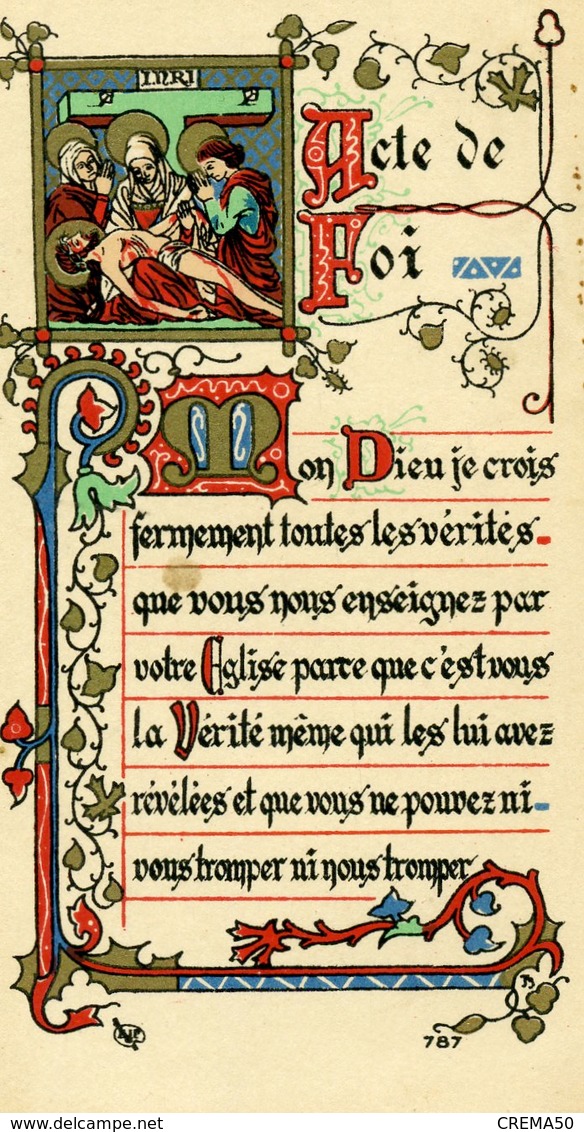 I.N.R.I
Acte de
Foi
Mon Dieu je crois
fermement toutes les vérités
que vous nous enseignez par
votre Eglise parce que c'est vous
la Vérité même qui les lui avez
révélées et que vous ne pouvez ni
vous tromper ni nous tromper
787
www.delcampe.net
CREMA50